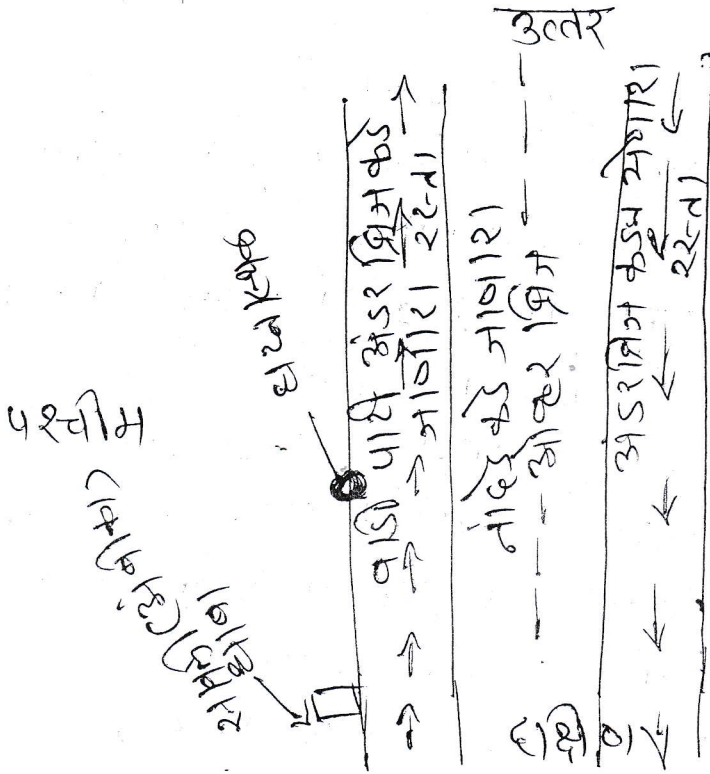 उत्तर
पश्चीम
घटनास्थळ
वाशी पाथे अंडर ब्रिज कडे
जाणारा रस्ता
नांदेड कडे जाणारा
ओव्हर ब्रिज
अंडर ब्रिज कडुन येणारा
रस्ता
दक्षिण